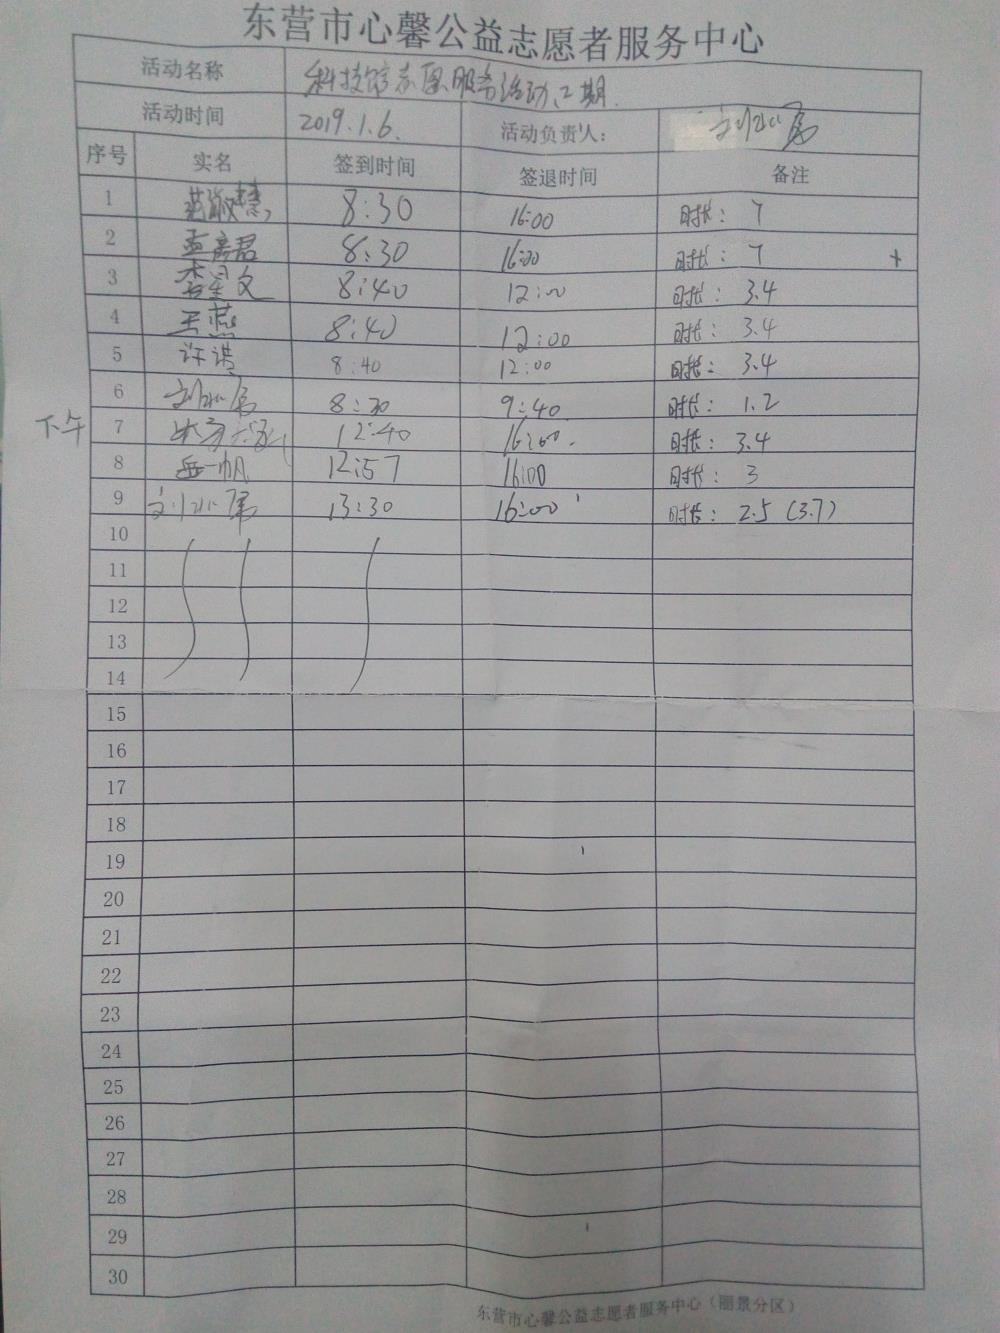 东营市心馨公益志愿者服务中心
活动名称 科技馆志愿服务活动二期
活动时间 2019.1.6. 活动负责人:
序号 实名 签到时间 签退时间 备注
1 8:30 16:00 时长: 7
2 孟彦君 8:30 16:00 时长: 7
3 李星文 8:40 12:00 时长: 3.4
4 王燕 8:40 12:00 时长: 3.4
5 8:40 12:00 时长: 3.4
6 8:30 9:40 时长: 1.2
下午 7 12:40 16:00. 时长: 3.4
8 岳一帆 12:57 16:00 时长: 3
9 13:30 16:00 时长: 2.5 (3.7)
10
11
12
13
14
15
16
17
18
19
20
21
22
23
24
25
26
27
28
29
30
东营市心馨公益志愿者服务中心(丽景分区)